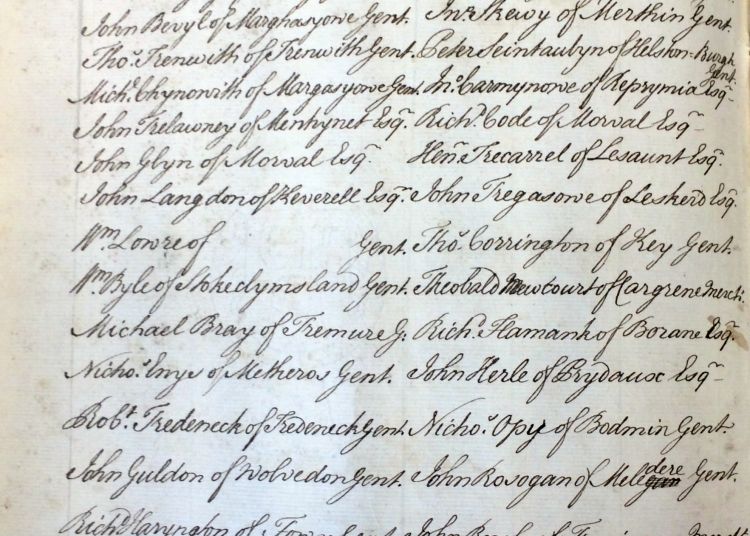 John Bevyl of Marghasyowe Gent. Jno. Skewy of Merthin Gent.
Thos. Trenwith of Trenwith Gent. Peter Seintaubyn of Helston-Burgh Gent.
Michl. Chynowith of Margasyowe Gen. Jno. Carmynowe of Reprymia Esqr
John Trelawney of Menhynet Esqr. Richd. Code of Morval Esqr
John Glyn of Morval Esqr. Hen. Trecarrel of Lesaunt Esqr.
John Langdon of Keverell Esqr John Tregasowe of Leskerd Esqr.
Wm. Lowre of Gent. Thos. Corrington of Key Gent.
Wm. Byle of Stokeclymsland Gent. Theobald Newcourt of Cargrene Mercht.
Michael Bray of Tremure G: Richd. Flamank of Borane Esqr.
Nichos. Enys of Metheros Gent. John Herle of Prydaux Esqr
Robt. Tredeneck of Tredeneck Gent. Nichos. Opy of Bodmin Gent.
John Guldon of Wolvedon Gent. John Rosogan of Meledere Gent.
Richd. Haryngton of